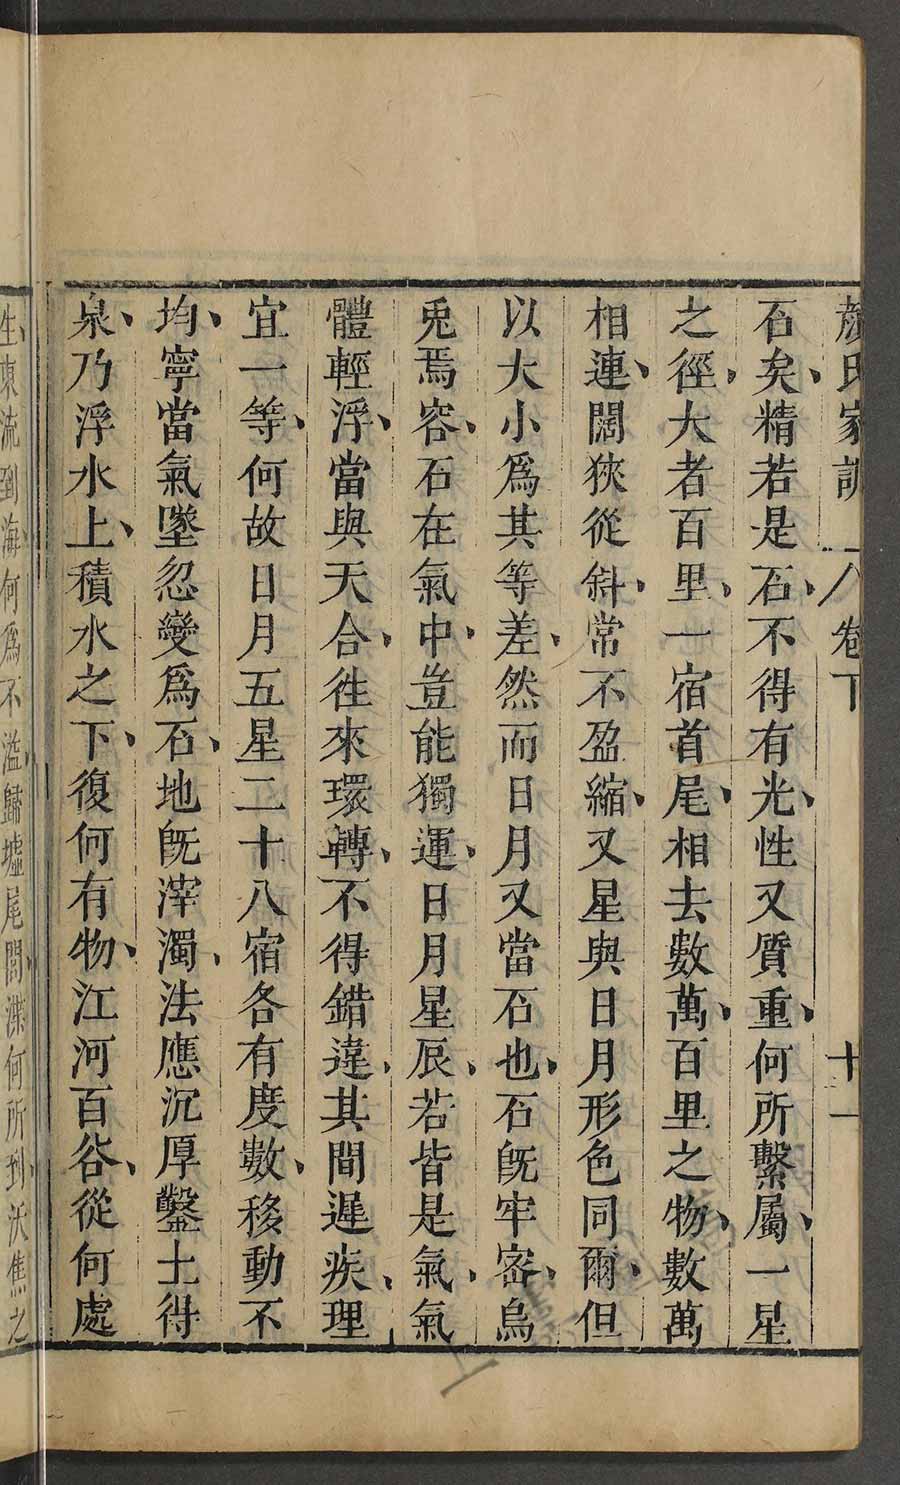 顏氏家訓 卷下 十一
石矣、精若是石、不得有光、性又質重、何所繫屬、一星
之徑、大者百里、一宿首尾、相去數萬、百里之物、數萬
相連、闊狹從斜、常不盈縮、又星與日月形色同爾、但
以大小爲其等差、然而日月又當石也、石旣牢密、烏
兎焉容、石在氣中、豈能獨運、日月星辰、若皆是氣、氣
體輕浮、當與天合、徃來環轉、不得錯違、其間遲疾、理
宜一等、何故日月五星二十八宿各有度數、移動不
均、寧當氣墜忽變爲石、地旣滓濁、法應沉厚鑿土得
泉、乃浮水上、積水之下、復何有物、江河百谷、從何處
生、東流到海、何爲不溢、歸墟尾閭、渫何所到、沃焦之